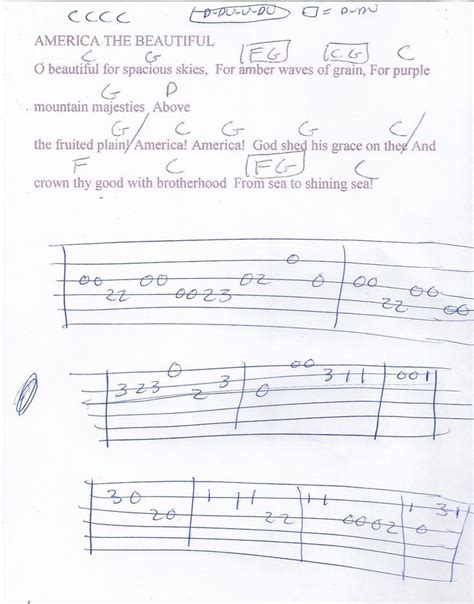 C C C C D-DU-U-DU □ = D-DU
AMERICA THE BEAUTIFUL
C G F G C.G C
O beautiful for spacious skies, For amber waves of grain, For purple
G D
mountain majesties Above
G / C G G C /
the fruited plain! America! America! God shed his grace on thee And
F C F G
crown thy good with brotherhood From sea to shining sea!
0
00 00 02 0 00 00
22 0023 22 00
0 00
3 2 3 2 3 0 3 1 1 0 0 1
3 0 1 1 1 1 1 1 3 1
2 0 2 2 0 0 0 2 0